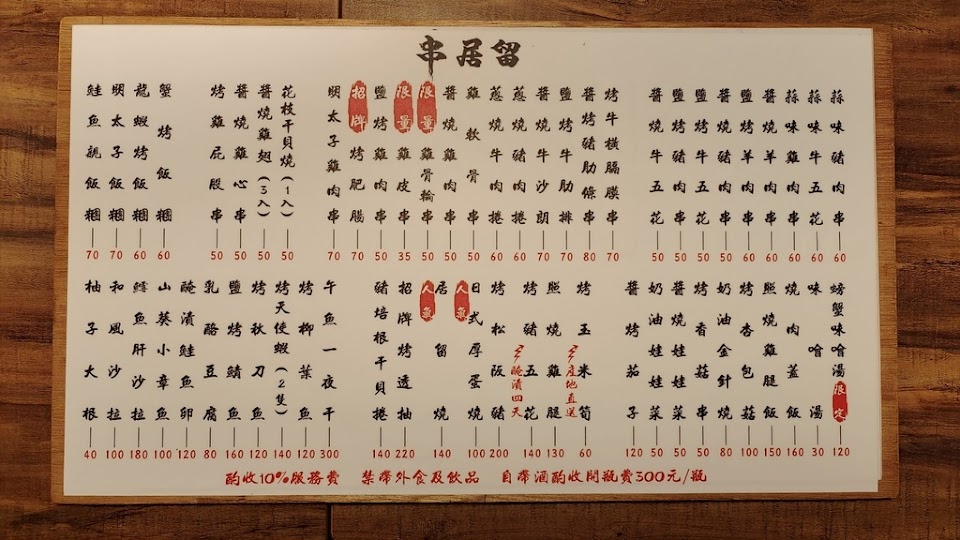 串居留
蒜味豬肉串 60
蒜味牛五花 60
蒜味羊肉串 60
醬燒羊肉串 60
鹽烤羊肉串 60
醬燒豬肉串 50
鹽烤牛五花 50
鹽烤豬肉串 50
醬燒牛五花 50
烤牛橫膈膜串 70
醬烤豬肋條 80
鹽烤牛肋排 70
醬燒牛沙朗 70
蔥燒豬肉捲 60
蔥燒牛肉捲 60
雞軟骨串 50
醬燒雞肉串 50
限量 鹽烤雞骨輪串 50
限量 鹽烤雞皮串 35
鹽烤雞肉串 50
招牌 烤肥腸 70
明太子雞肉串 70
花枝干貝燒(1入) 50
醬燒雞翅(3入) 50
醬燒雞心串 50
烤雞屁股串 50
蟹烤飯糰 60
龍蝦烤飯糰 60
明太子飯糰 70
鮭魚親飯糰 70
螃蟹味噌湯 限定 120
味噌湯 30
燒肉蓋飯 160
照燒雞腿飯 150
烤杏包菇 100
奶油金針菇 100
烤香菇串
醬燒娃娃菜
奶油娃娃菜
醬烤茄子 120
烤玉米筍 60
產地直送
照燒雞腿 130
醃漬四天
烤豬五花 140
烤松阪豬 200
人氣 日式厚蛋燒 100
人氣 居留燒 140
招牌烤透抽 220
豬培根干貝捲 140
午魚一夜干 300
烤柳葉魚 120
烤天使蝦(2隻) 140
烤秋刀魚 120
鹽烤鯖魚 160
乳酪豆腐 80
醃漬鮭魚卵 120
山葵小章魚 100
鱈魚肝沙拉 180
和風沙拉 100
柚子大根 40
酌收10%服務費 禁帶外食及飲品 自帶酒酌收開瓶費300元/瓶